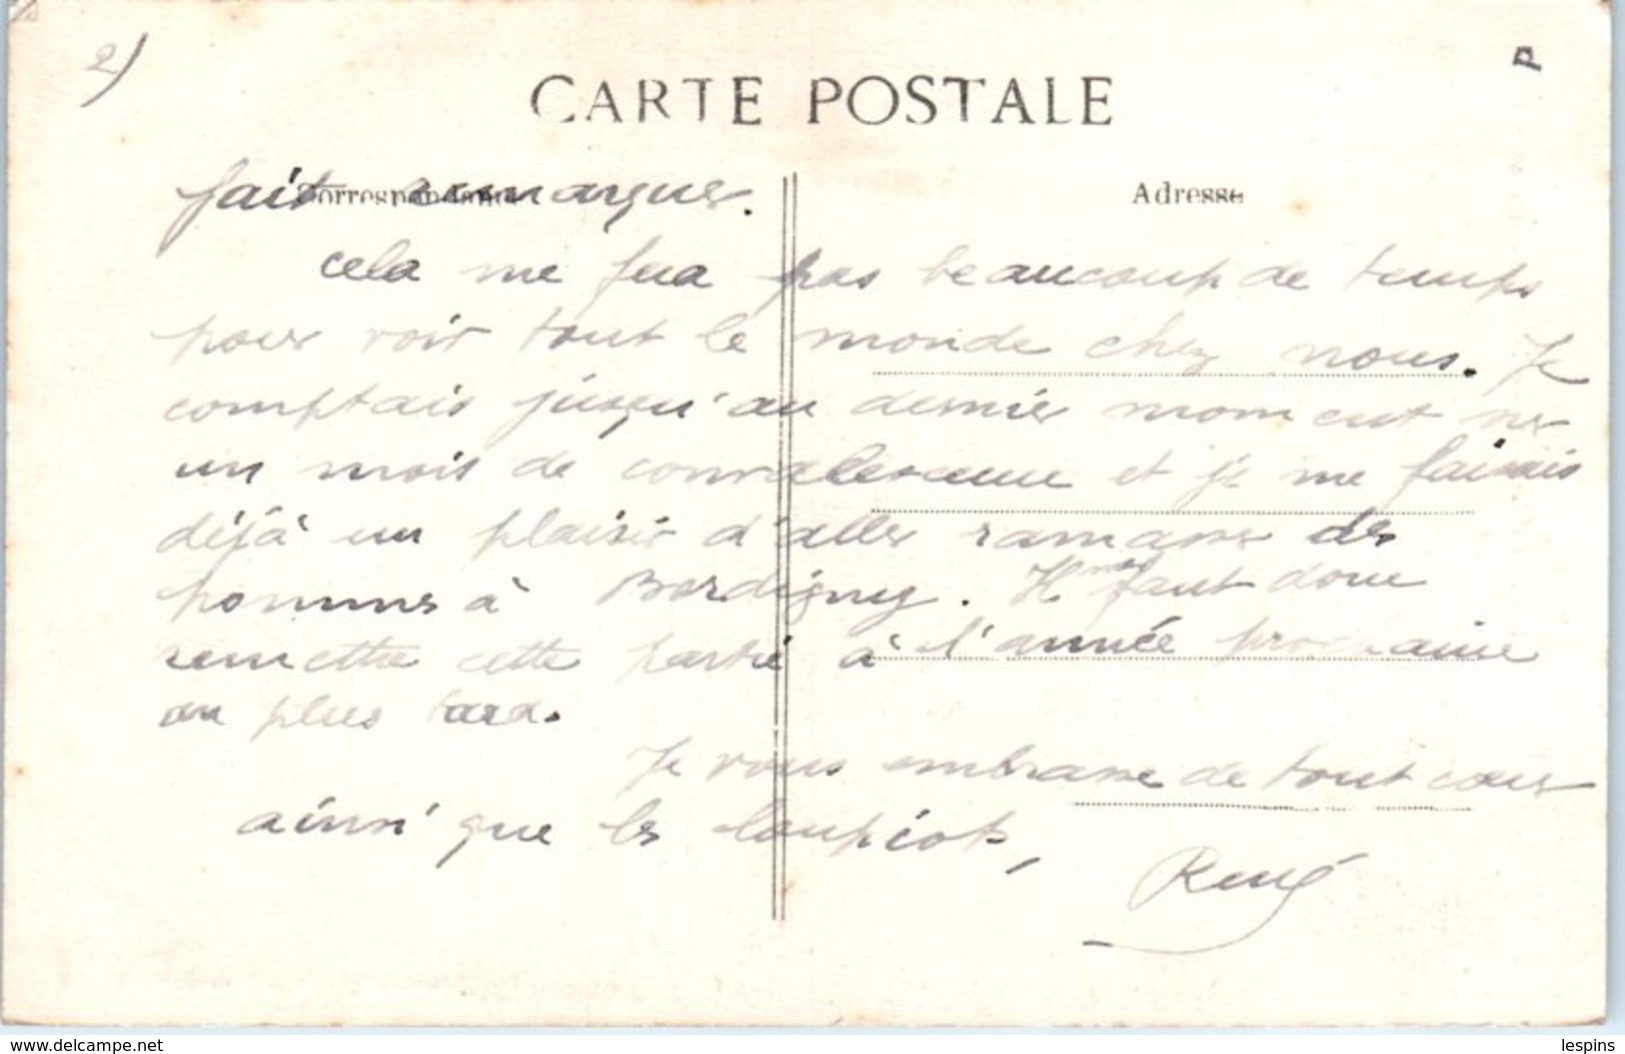 2)
CARTE POSTALE
P
Correspondance
Adresse
fait remarquer.
Cela me fera pas beaucoup de temps
pour voir tout le monde chez nous. Je
comptais jusqu'au dernier moment sur
un mois de convalescence et je me faisais
déjà un plaisir d'aller ramasser des
pommes à Bordigny. Il faut donc
remettre cette partie à l'année prochaine
ou plus tard.
Je vous embrasse de tout cœur
ainsi que les loupiots,
René
www.delcampe.net
lespins